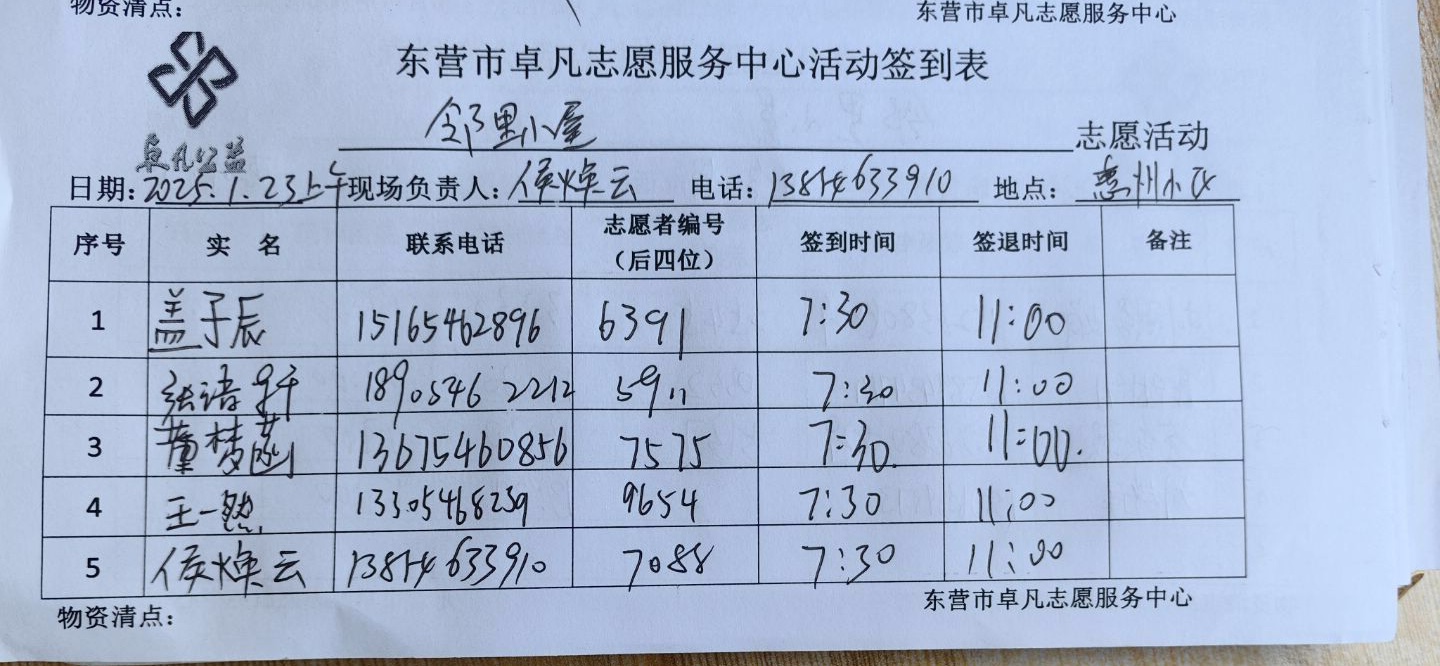 物资清点：
东营市卓凡志愿服务中心
东营市卓凡志愿服务中心活动签到表
卓凡公益
邻里小屋 志愿活动
日期：2025.1.23上午 现场负责人：侯焕云 电话：13854633910 地点：惠州小区
序号 实 名 联系电话 志愿者编号（后四位） 签到时间 签退时间 备注
1 盖子辰 15165462896 6391 7:30 11:00
2 张诗轩 18905462212 5911 7:30 11:00
3 董梦菡 13675460856 7575 7:30. 11:00.
4 王一然 13305468239 9654 7:30 11:00
5 侯焕云 13854633910 7088 7:30 11:00
物资清点：
东营市卓凡志愿服务中心